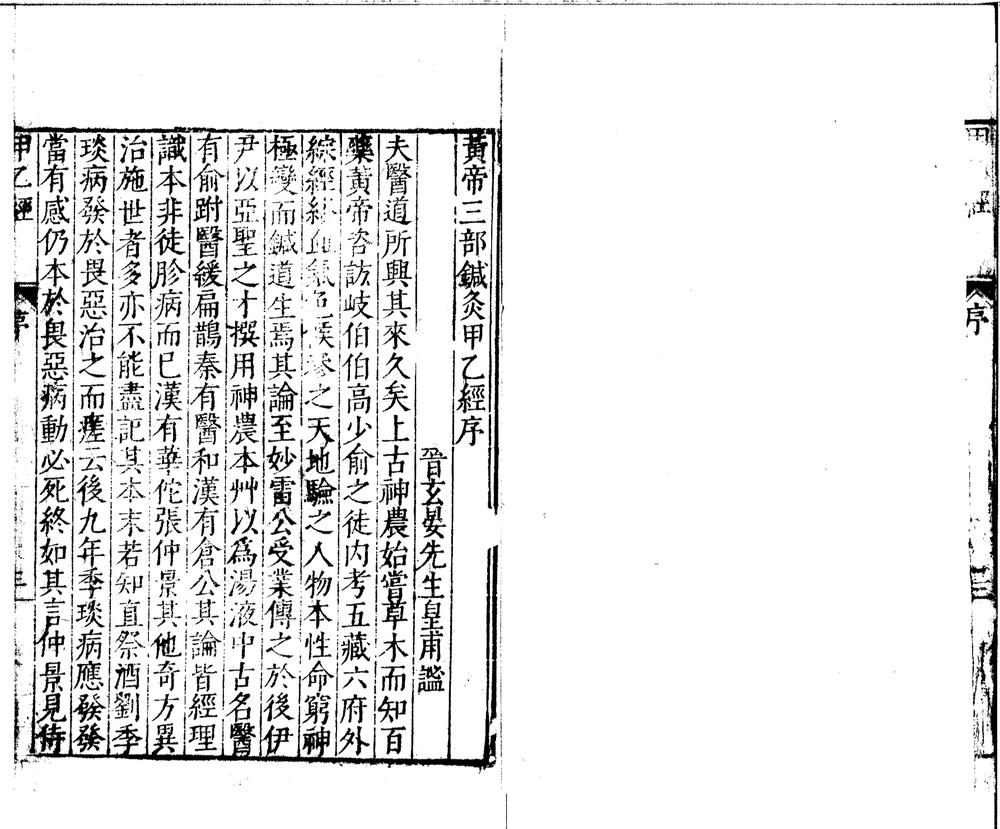 序
三
黃帝三部鍼灸甲乙經序
晉玄晏先生皇甫謐
夫醫道所興其來久矣上古神農始嘗草木而知百
藥黃帝咨訪岐伯伯高少俞之徒內考五藏六府外
綜經絡血氣色候參之天地驗之人物本性命窮神
極變而鍼道生焉其論至妙雷公受業傳之於後伊
尹以亞聖之才撰用神農本艸以爲湯液中古名醫
有俞跗醫緩扁鵲秦有醫和漢有倉公其論皆經理
識本非徒胗病而已漢有華佗張仲景其他奇方異
治施世者多亦不能盡記其本末若知直祭酒劉季
琰病發於畏惡治之而瘥云後九年季琰病應發發
當有感仍本於畏惡病動必死終如其言仲景見侍
甲乙經
序